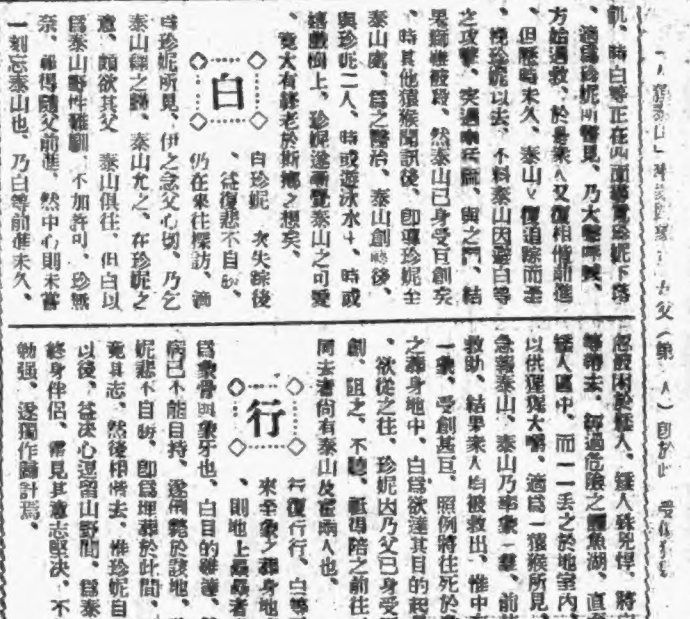 、時白等正在四面尋覓珍妮下落
、適爲珍妮所瞥見、乃大聲呼援、
方始遇救、於是衆人又復相偕前進
、但歷時未久、泰山又復追踪而至
、挽珍妮以去、不料泰山因避白等
之攻擊、突遇、與之鬥、結
果獅雖被殺、然泰山已身受巨創矣
、時其他猿猴聞訊後、卽導珍妮至
泰山處、爲之醫治、泰山創後、
與珍妮二人、時或遊泳水中、時或
嬉戲樹上、珍妮遂漸覺泰山之可愛
、竟大有終老於斯鄉之想矣、
白
自珍妮次失踪後
、益復悲不自勝、
仍在來往探訪、適
時珍妮所見、伊之念父心切、乃乞
泰山歸之、泰山允之、在珍妮之
意、頗欲其父泰山俱往、但白以
爲泰山野性難馴不加許可、珍無
奈、祗得隨父前進、然中心則未嘗
一刻忘泰山也、乃白等前進未久、
忽被困於矮人、矮人殊兇悍、將
等帶去、經過危險之鱷魚湖、直
矮人區中、而一一丟之於地室內
以供猩猩大嚼、適爲一猿猴所見
急報泰山、泰山乃率象一羣、前
救助、結果衆人均被救出、惟中
一象、受創甚巨、照例將往死於
之葬身地中、白爲欲達其目的起
、欲從之往、珍妮因乃父已身受
創、阻之、不聽、祗得陪之前往
同去者尚有泰山及霍兩人也、
行
行復行行、白等
來至象之葬身地
、則地上纍纍者
爲象骨與象牙也、白目的雖達、
病已不能自持、遂倒斃於該地、
妮悲不自勝、卽爲埋葬於此間、
竟其志、然後相偕去、惟珍妮自
以後、益決心逗留山野間、爲泰
終身伴侶、霍見其意志堅決、不
勉强、遂獨作歸計焉、